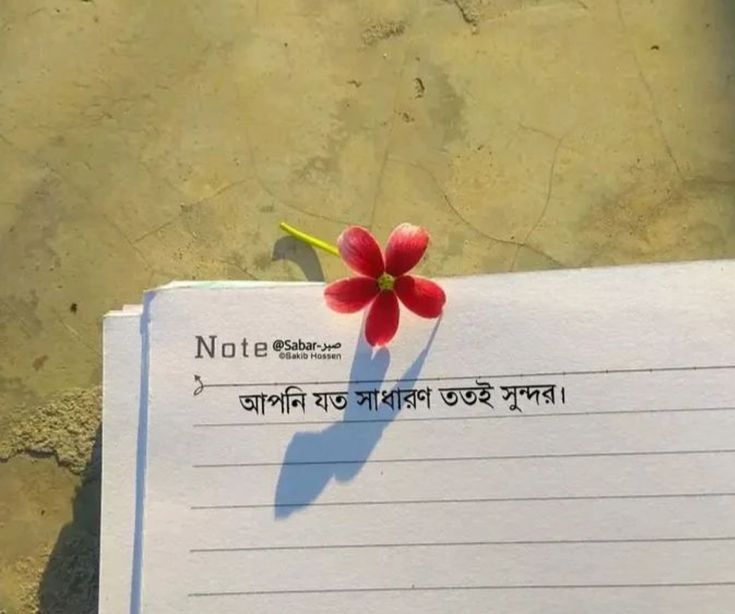 Note @Sabar-صبر
©Sakib Hossen
আপনি যত সাধারণ ততই সুন্দর।